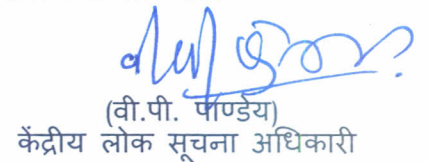 (वी.पी. पाण्डेय)
केंद्रीय लोक सूचना अधिकारी